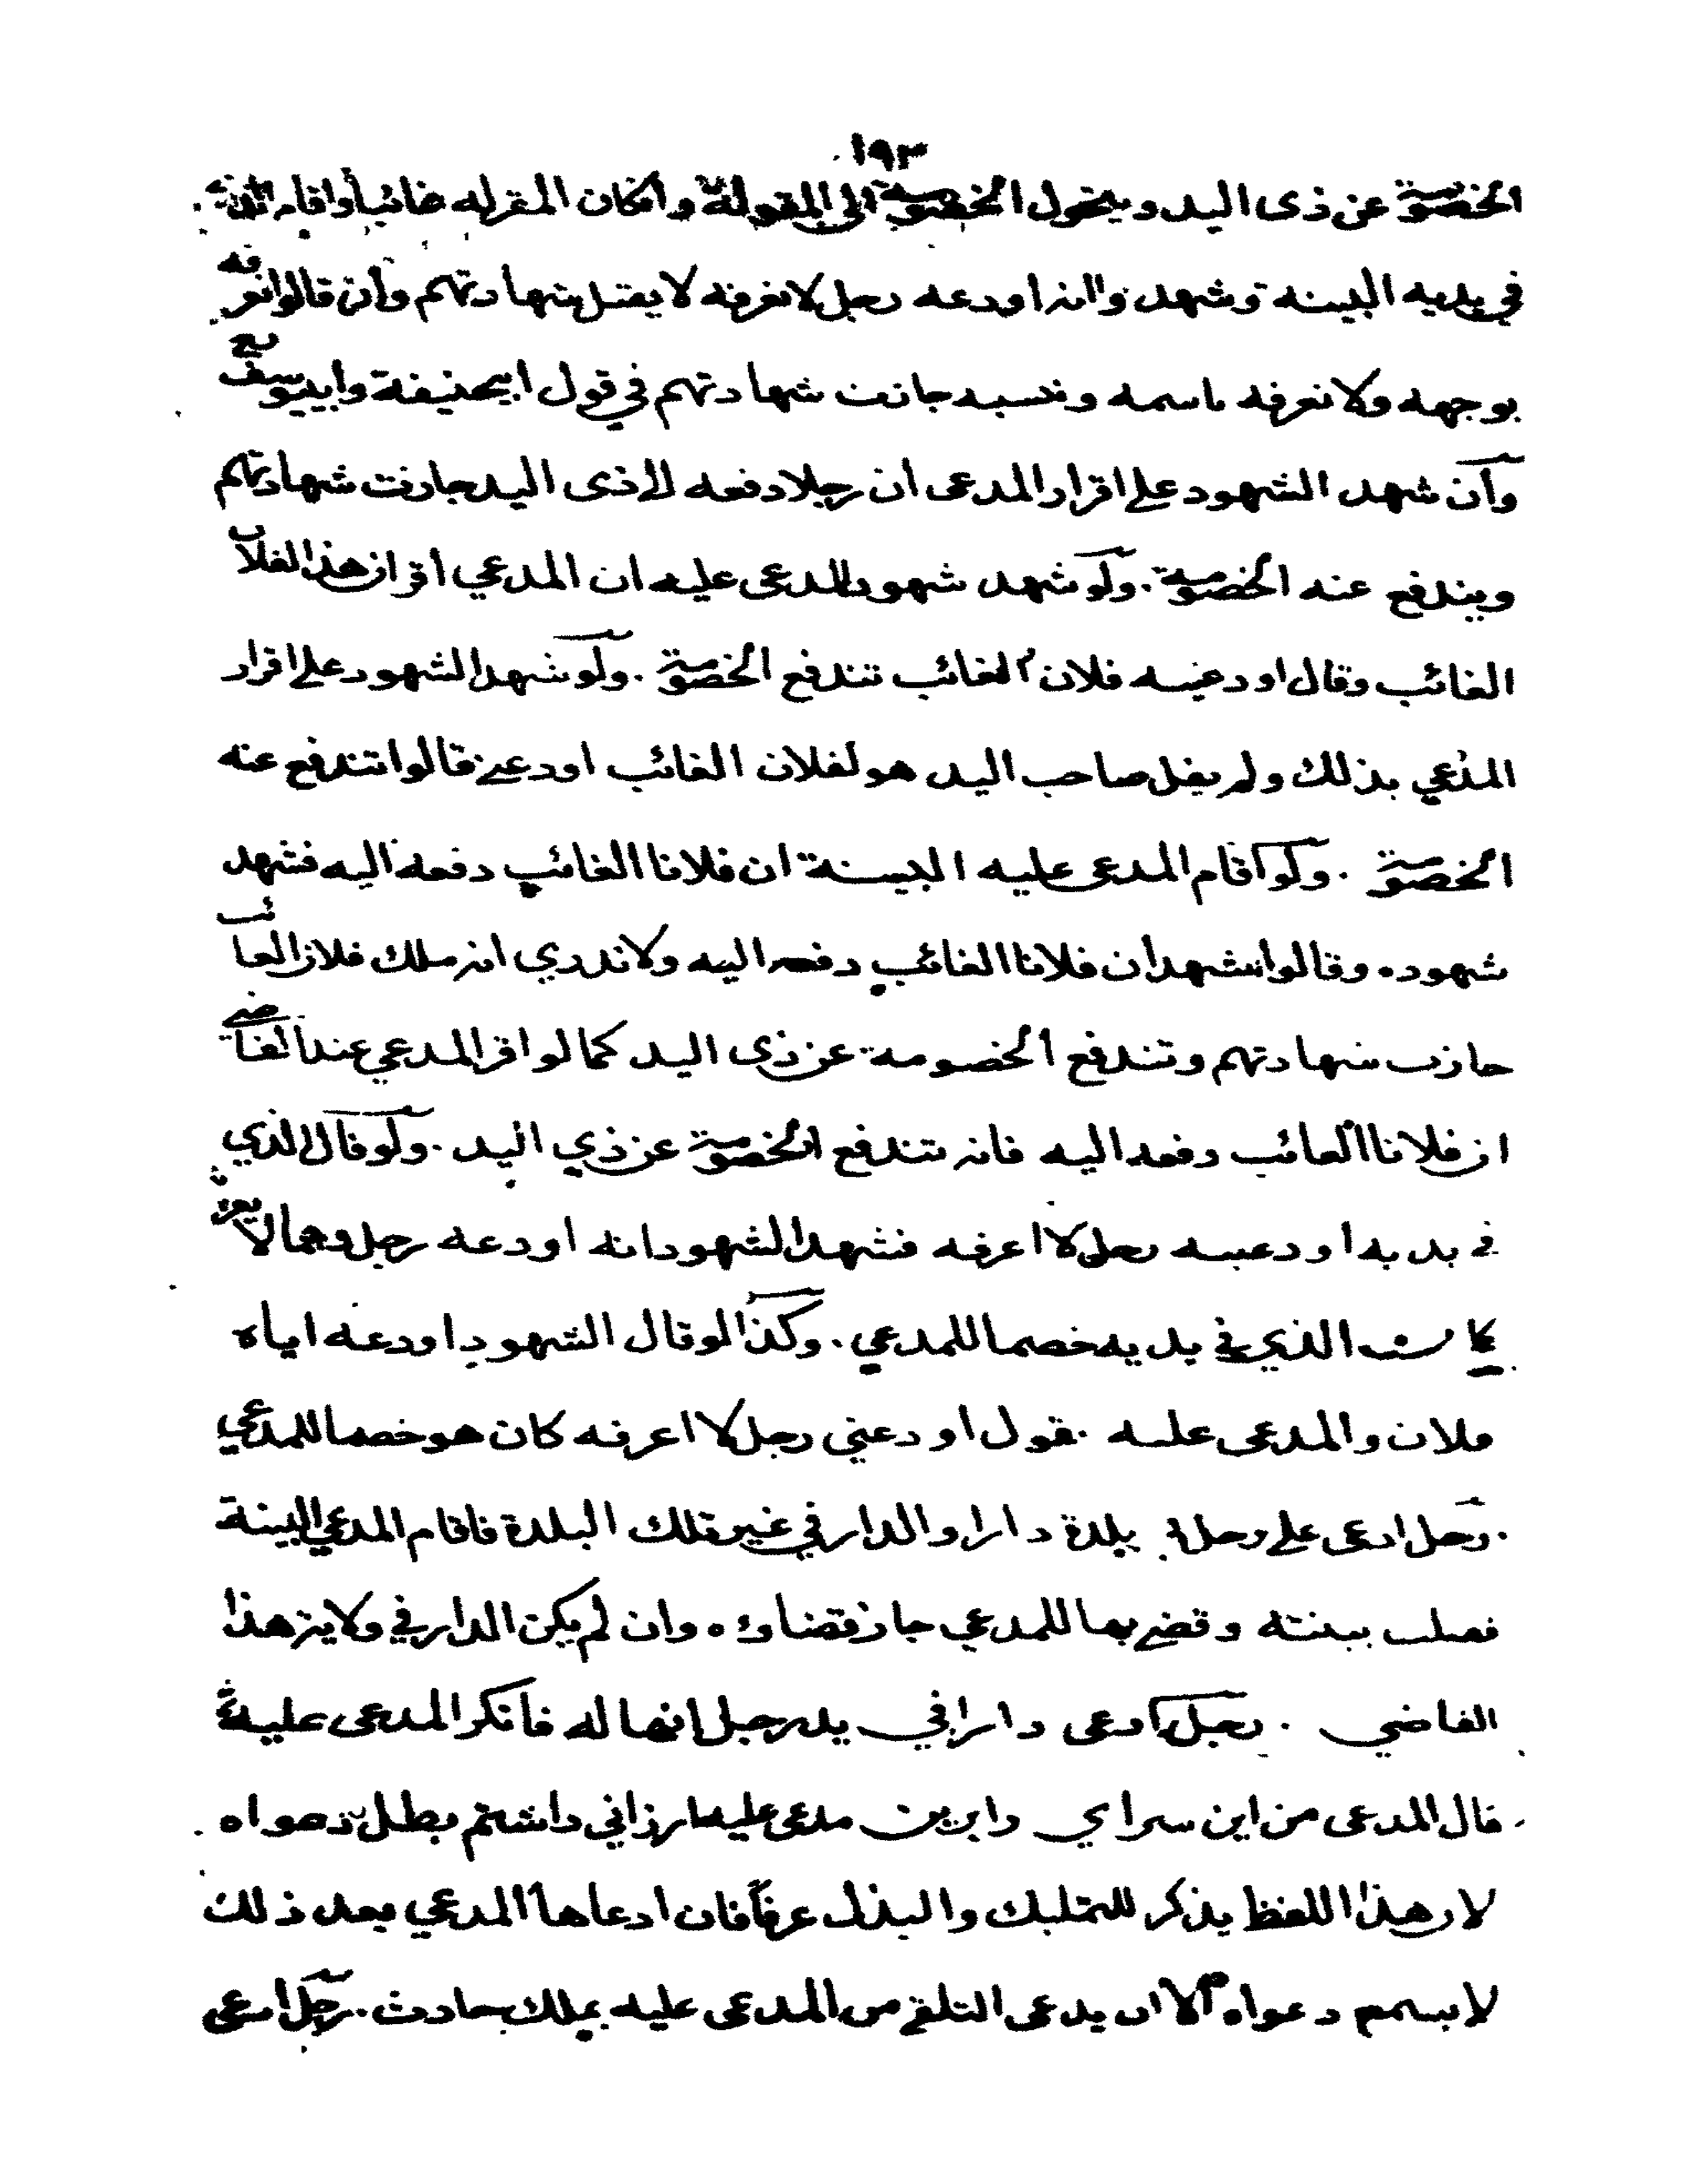 ١٩٣
الخصومة عن ذى اليد ويتحول الخصومة الى المقر له وان كان المقر له غائبا واقام الذى
في يديه البينه وشهدوا انه اودعه رجل لا نعرفه لا يقبل شهادتهم وان قالوا نعرفه
بوجهه ولا نعرفه باسمه ونسبه جازت شهادتهم في قول ابيحنيفة وابييوسف رح
وان شهد الشهود على اقرار المدعى ان رجلا دفعه الى ذى اليد جازت شهادتهم
ويندفع عنه الخصومة . ولو شهد شهود المدعى عليه ان المدعي اقر ان هذا لفلان
الغائب وقال اودعنيه فلان الغائب تندفع الخصومة . ولو شهد الشهود على اقرار
المدعي بذلك ولم يقل صاحب اليد هو لفلان الغائب اودعنى قالوا تندفع عنه
الخصومة . ولو اقام المدعى عليه البينة ان فلانا الغائب دفعه اليه فشهد
شهوده وقالوا نشهد ان فلانا الغائب دفعه اليه ولا ندري انه ملك فلان الغائب
جازت شهادتهم وتندفع الخصومة عن ذى اليد كما لو اقر المدعي عند القاضى
ان فلانا الغائب دفعه اليه فانه تندفع الخصومة عن ذي اليد . ولو قال الذي
فى يديه اودعنيه رجل لا اعرفه فشهد الشهود انه اودعه رجل وهما لا يعرفانه
كان الذي في يديه خصما للمدعي . وكذا لو قال الشهود اودعه اياه
فلان والمدعى عليه يقول اودعني رجل لا اعرفه كان هو خصما للمدعي
. رجل ادعى على رجل فى بلدة دارا والدار في غير تلك البلدة فاقام المدعي البينة
فقبلت بينته وقضى بها للمدعي جاز قضاؤه وان لم يكن الدار في ولاية هذا
القاضي . رجل ادعى دارا في يد رجل انها له فانكر المدعى عليه
قال المدعى من اين سراي را برين مدعى عليه ارزاني داشتم بطل دعواه
لان هذا اللفظ يذكر للتمليك والبذل عرفا فان ادعاها المدعي بعد ذلك
لا يسمع دعواه الا ان يدعى التلقى من المدعى عليه بملك حادث . رجل ادعى